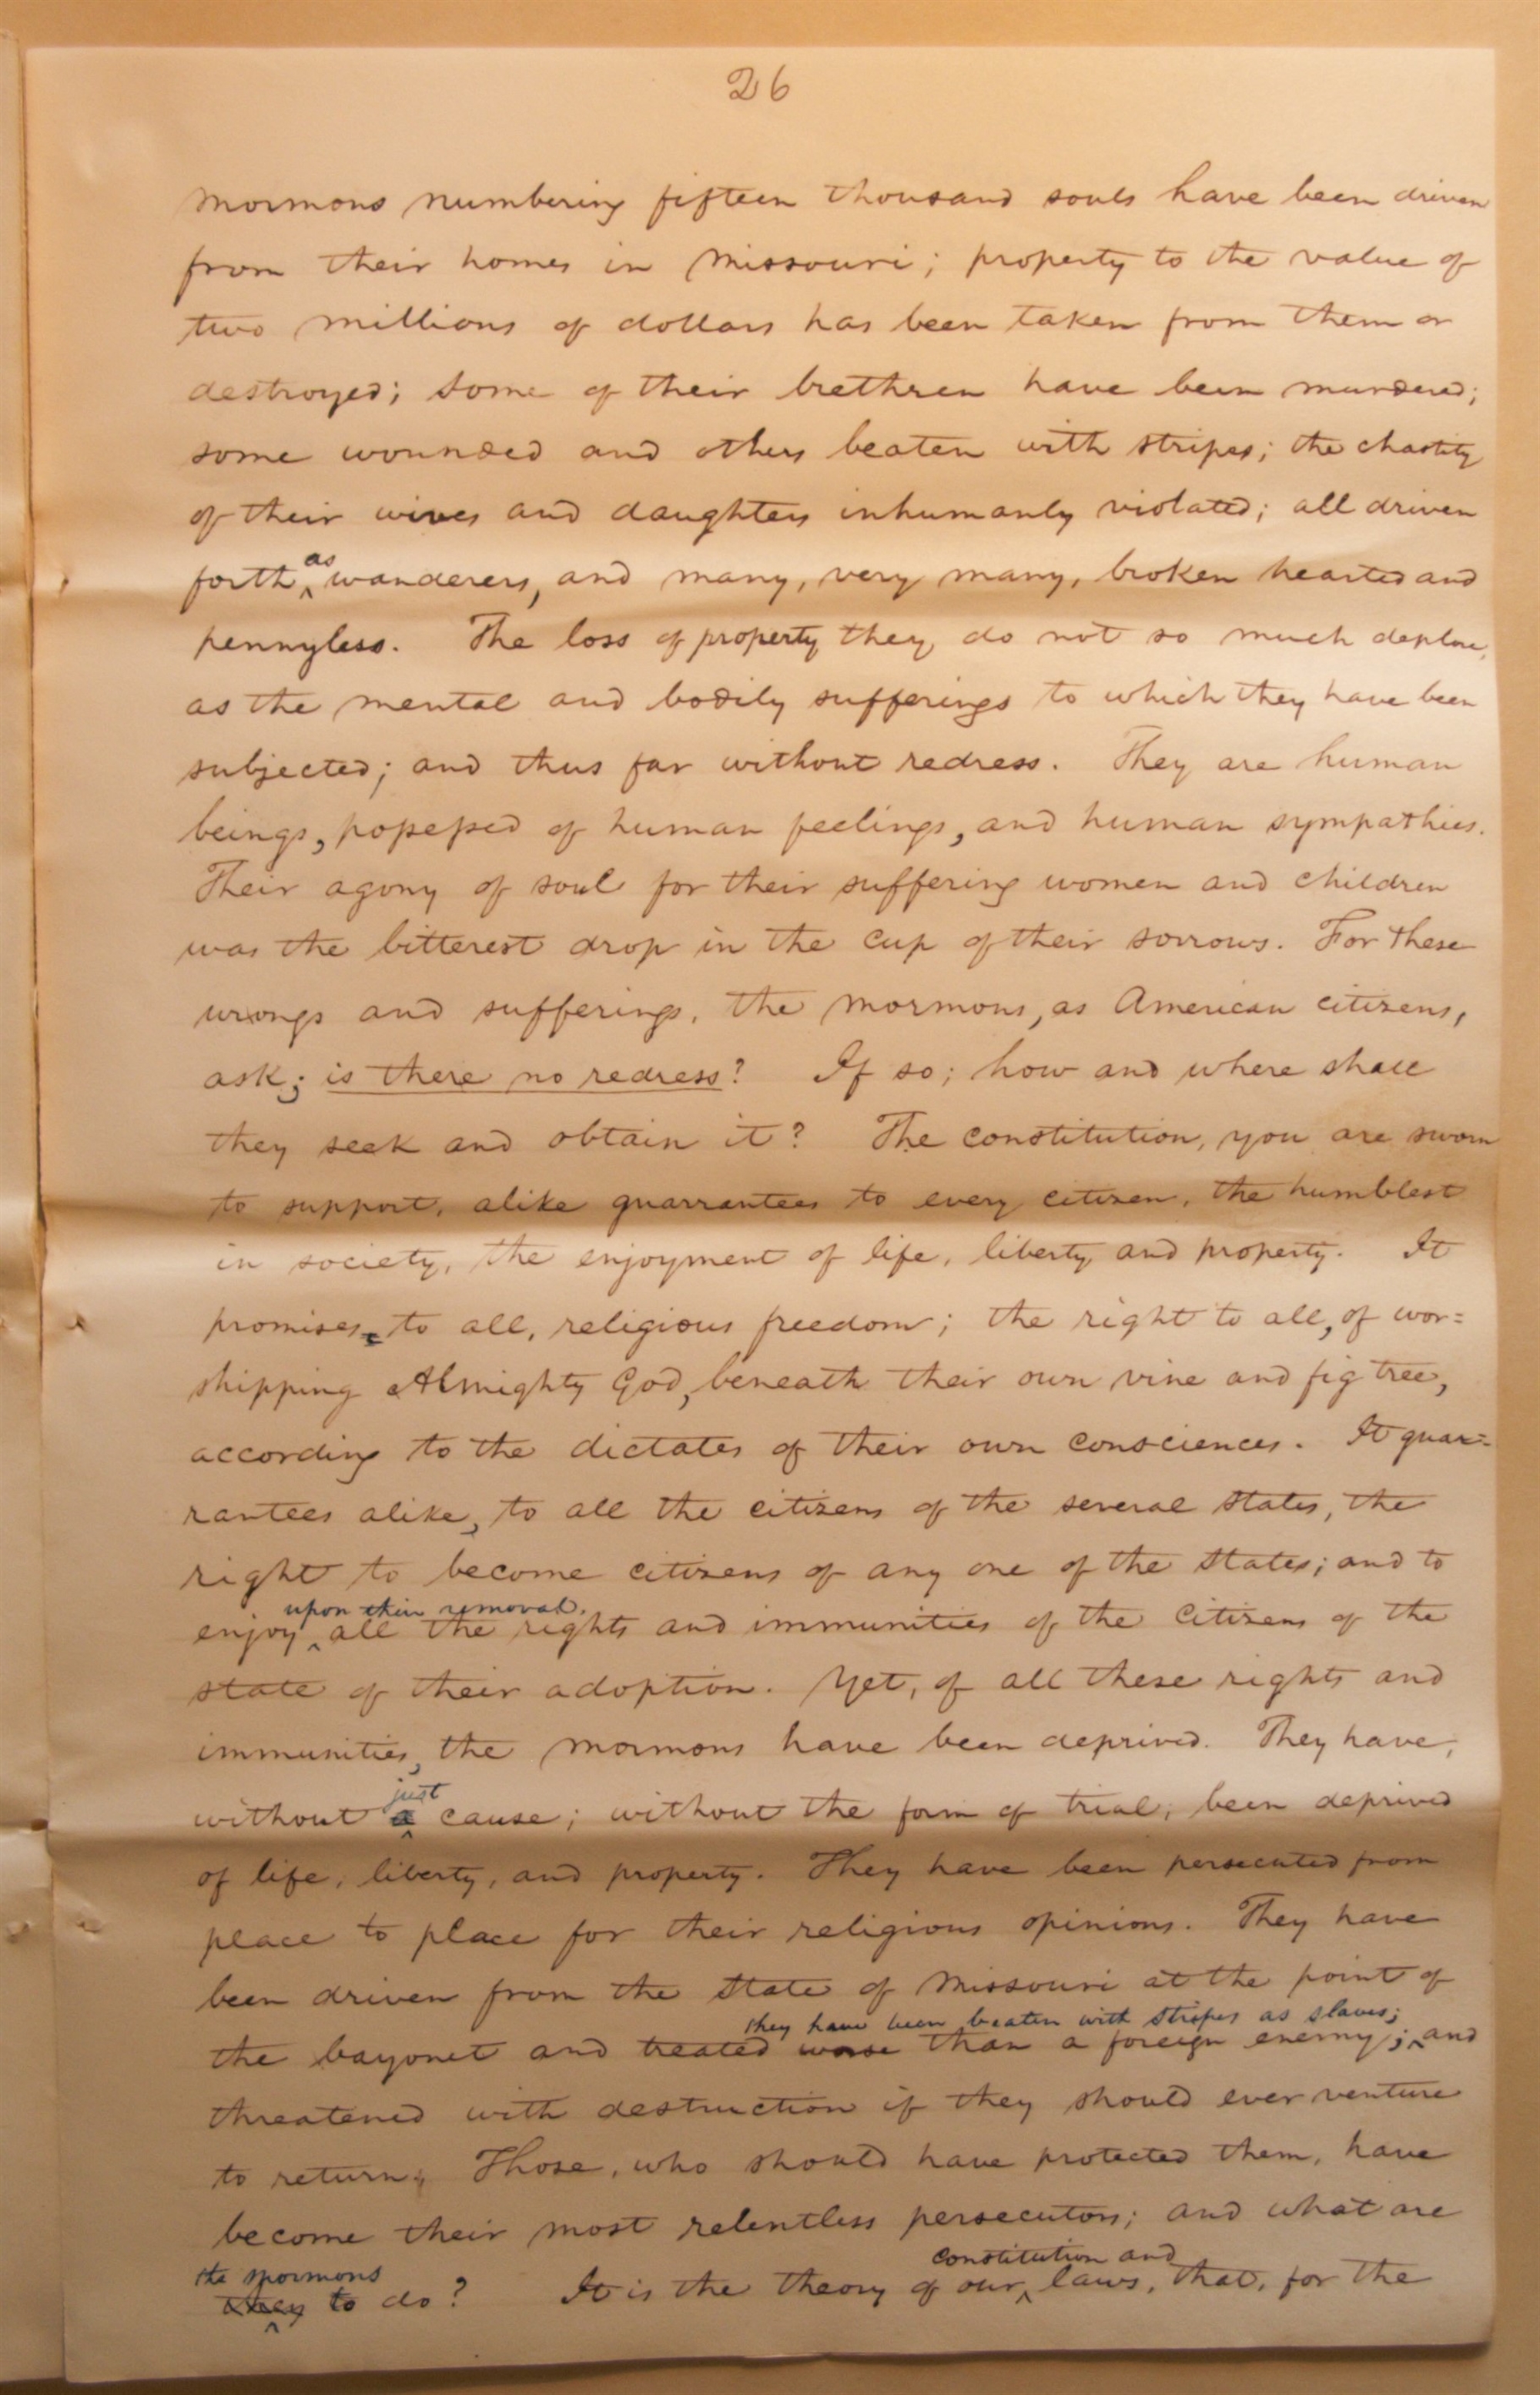 26
mormons numbering fifteen thousand souls have been driven
from their homes in Missouri; property to the value of
two millions of dollars has been taken from them or
destroyed; some of their brethren have been murdered;
some wounded and others beaten with stripes; the chastity
of their wives and daughters inhumanly violated; all driven
as
forth wanderers, and many, very many, broken hearted and
pennyless. The loss of property they do not so much deplore,
as the mental and bodily sufferings to which they have been
subjected; and thus far without redress. They are human
beings, possessed of human feelings, and human sympathies.
Their agony of soul for their suffering women and children
was the bitterest drop in the cup of their sorrows. For these
wrongs and sufferings, the mormons, as American citizens,
ask; is there no redress? If so; how and where shall
they seek and obtain it? The constitution, you are sworn
to support, alike guarrantees to every citizen, the humblest
in society, the enjoyment of life, liberty and property. It
promises to all, religious freedom; the right to all, of wor=
shipping Almighty God, beneath their own vine and fig tree,
according to the dictates of their own consciences. It guar=
rantees alike, to all the citizens of the several states, the
right to become citizens of any one of the states; and to
upon their removal,
enjoy all the rights and immunities of the Citizens of the
state of their adoption. Yet, of all these rights and
immunities, the mormons have been deprived. They have,
just
without a cause; without the form of trial, been deprived
of life, liberty, and property. They have been persecuted from
place to place for their religious opinions. They have
been driven from the state of Missouri at the point of
they have been beaten with stripes as slaves;
the bayonet and treated worse than a foreign enemy; and
threatened with destruction if they should ever venture
to return. Those, who should have protected them, have
become their most relentless persecutors; and what are
the mormons constitution and
they to do? It is the theory of our laws, that, for the